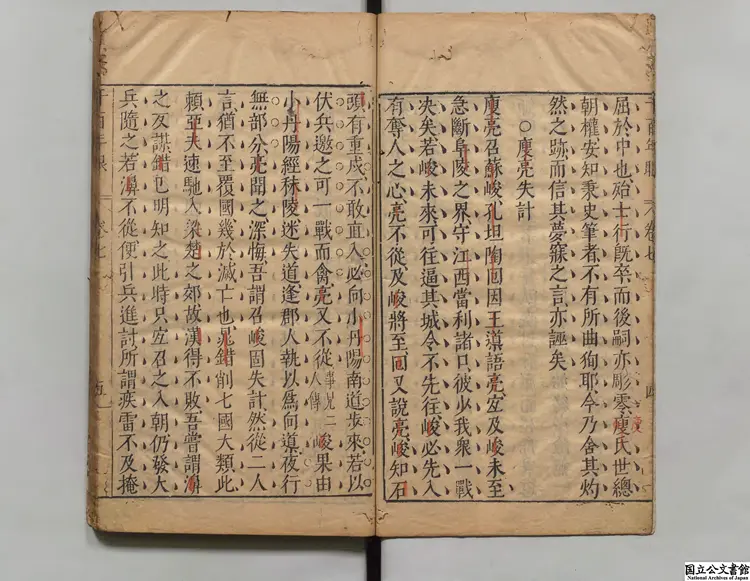 屈於中也殆士行既卒而後嗣亦彫零庾氏世總
朝權安知秉史筆者不有所曲徇耶今乃舍其灼
然之跡而信其夢寐之言亦誣矣
○庾亮失計
庾亮召蘇峻孔坦陶回因王導語亮宜及峻未至
急斷阜陵之界守江西當利諸口彼少我衆一戰
決矣若峻未來可往逼其城今不先往峻必先入
有奪人之心亮不從及峻將至回又說亮峻知石
頭有重戍不敢直入必向小丹陽南道步來若以
伏兵邀之可一戰而禽亮又不從事見二人傳峻果由
小丹陽經秣陵迷失道逢郡人執以為向導夜行
無部分亮聞之深悔吾謂召峻固失計然從二人
言猶不至覆國幾於滅亡也晁錯削七國大類此
賴亞夫速馳入梁楚之郊故漢得不敗吾嘗謂濞
之反謀錯已明知之此時只宜召之入朝仍發大
兵隨之若濞不從便引兵進討所謂疾雷不及掩
卷七
五
卷七
四
庾
国立公文書館
National Archives of Japan